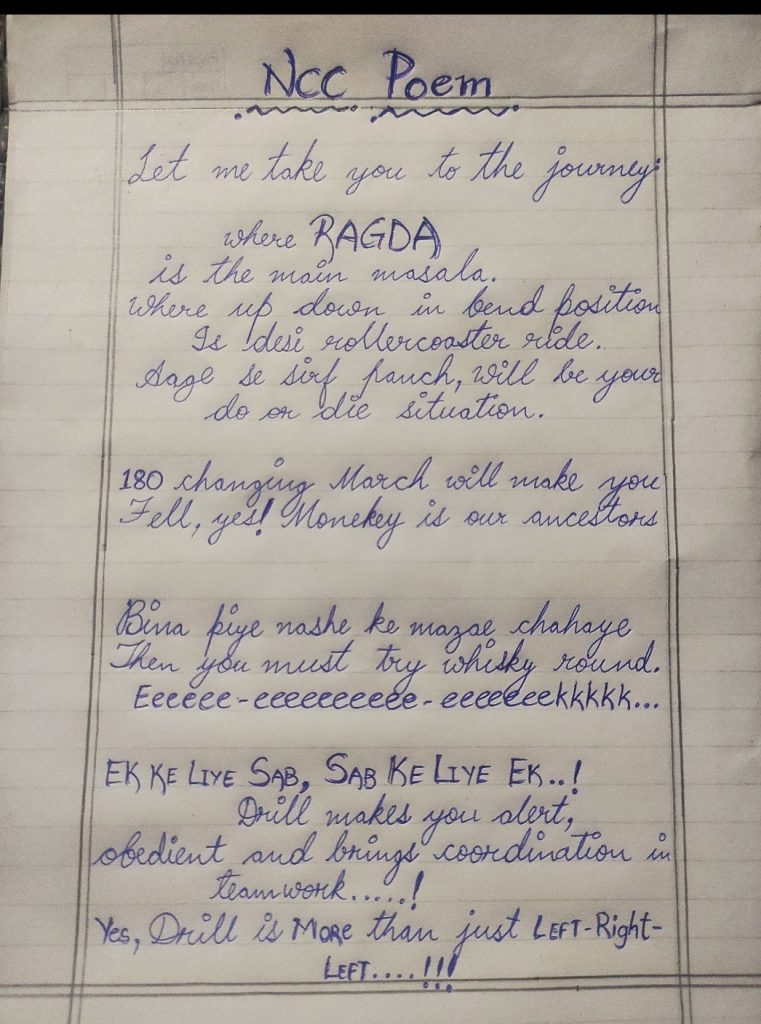 NCC Poem
Let me take you to the journey:
where RAGDA
is the main masala.
Where up down in bend position
Is desi rollercoaster ride.
Aage se sirf panch, will be your
do or die situation.
180 changing March will make you
Fell, yes! Monekey is our ancestors
Bina piye nashe ke mazae chahaye
Then you must try whisky round.
Eeeeee-eeeeeeeeee-eeeeeeekkkkk...
EK KE LIYE SAB, SAB KE LIYE EK..!
Drill makes you alert,
obedient and brings coordination in
teamwork.....!
Yes, Drill is MORE than just LEFT-Right-
LEFT....!!!